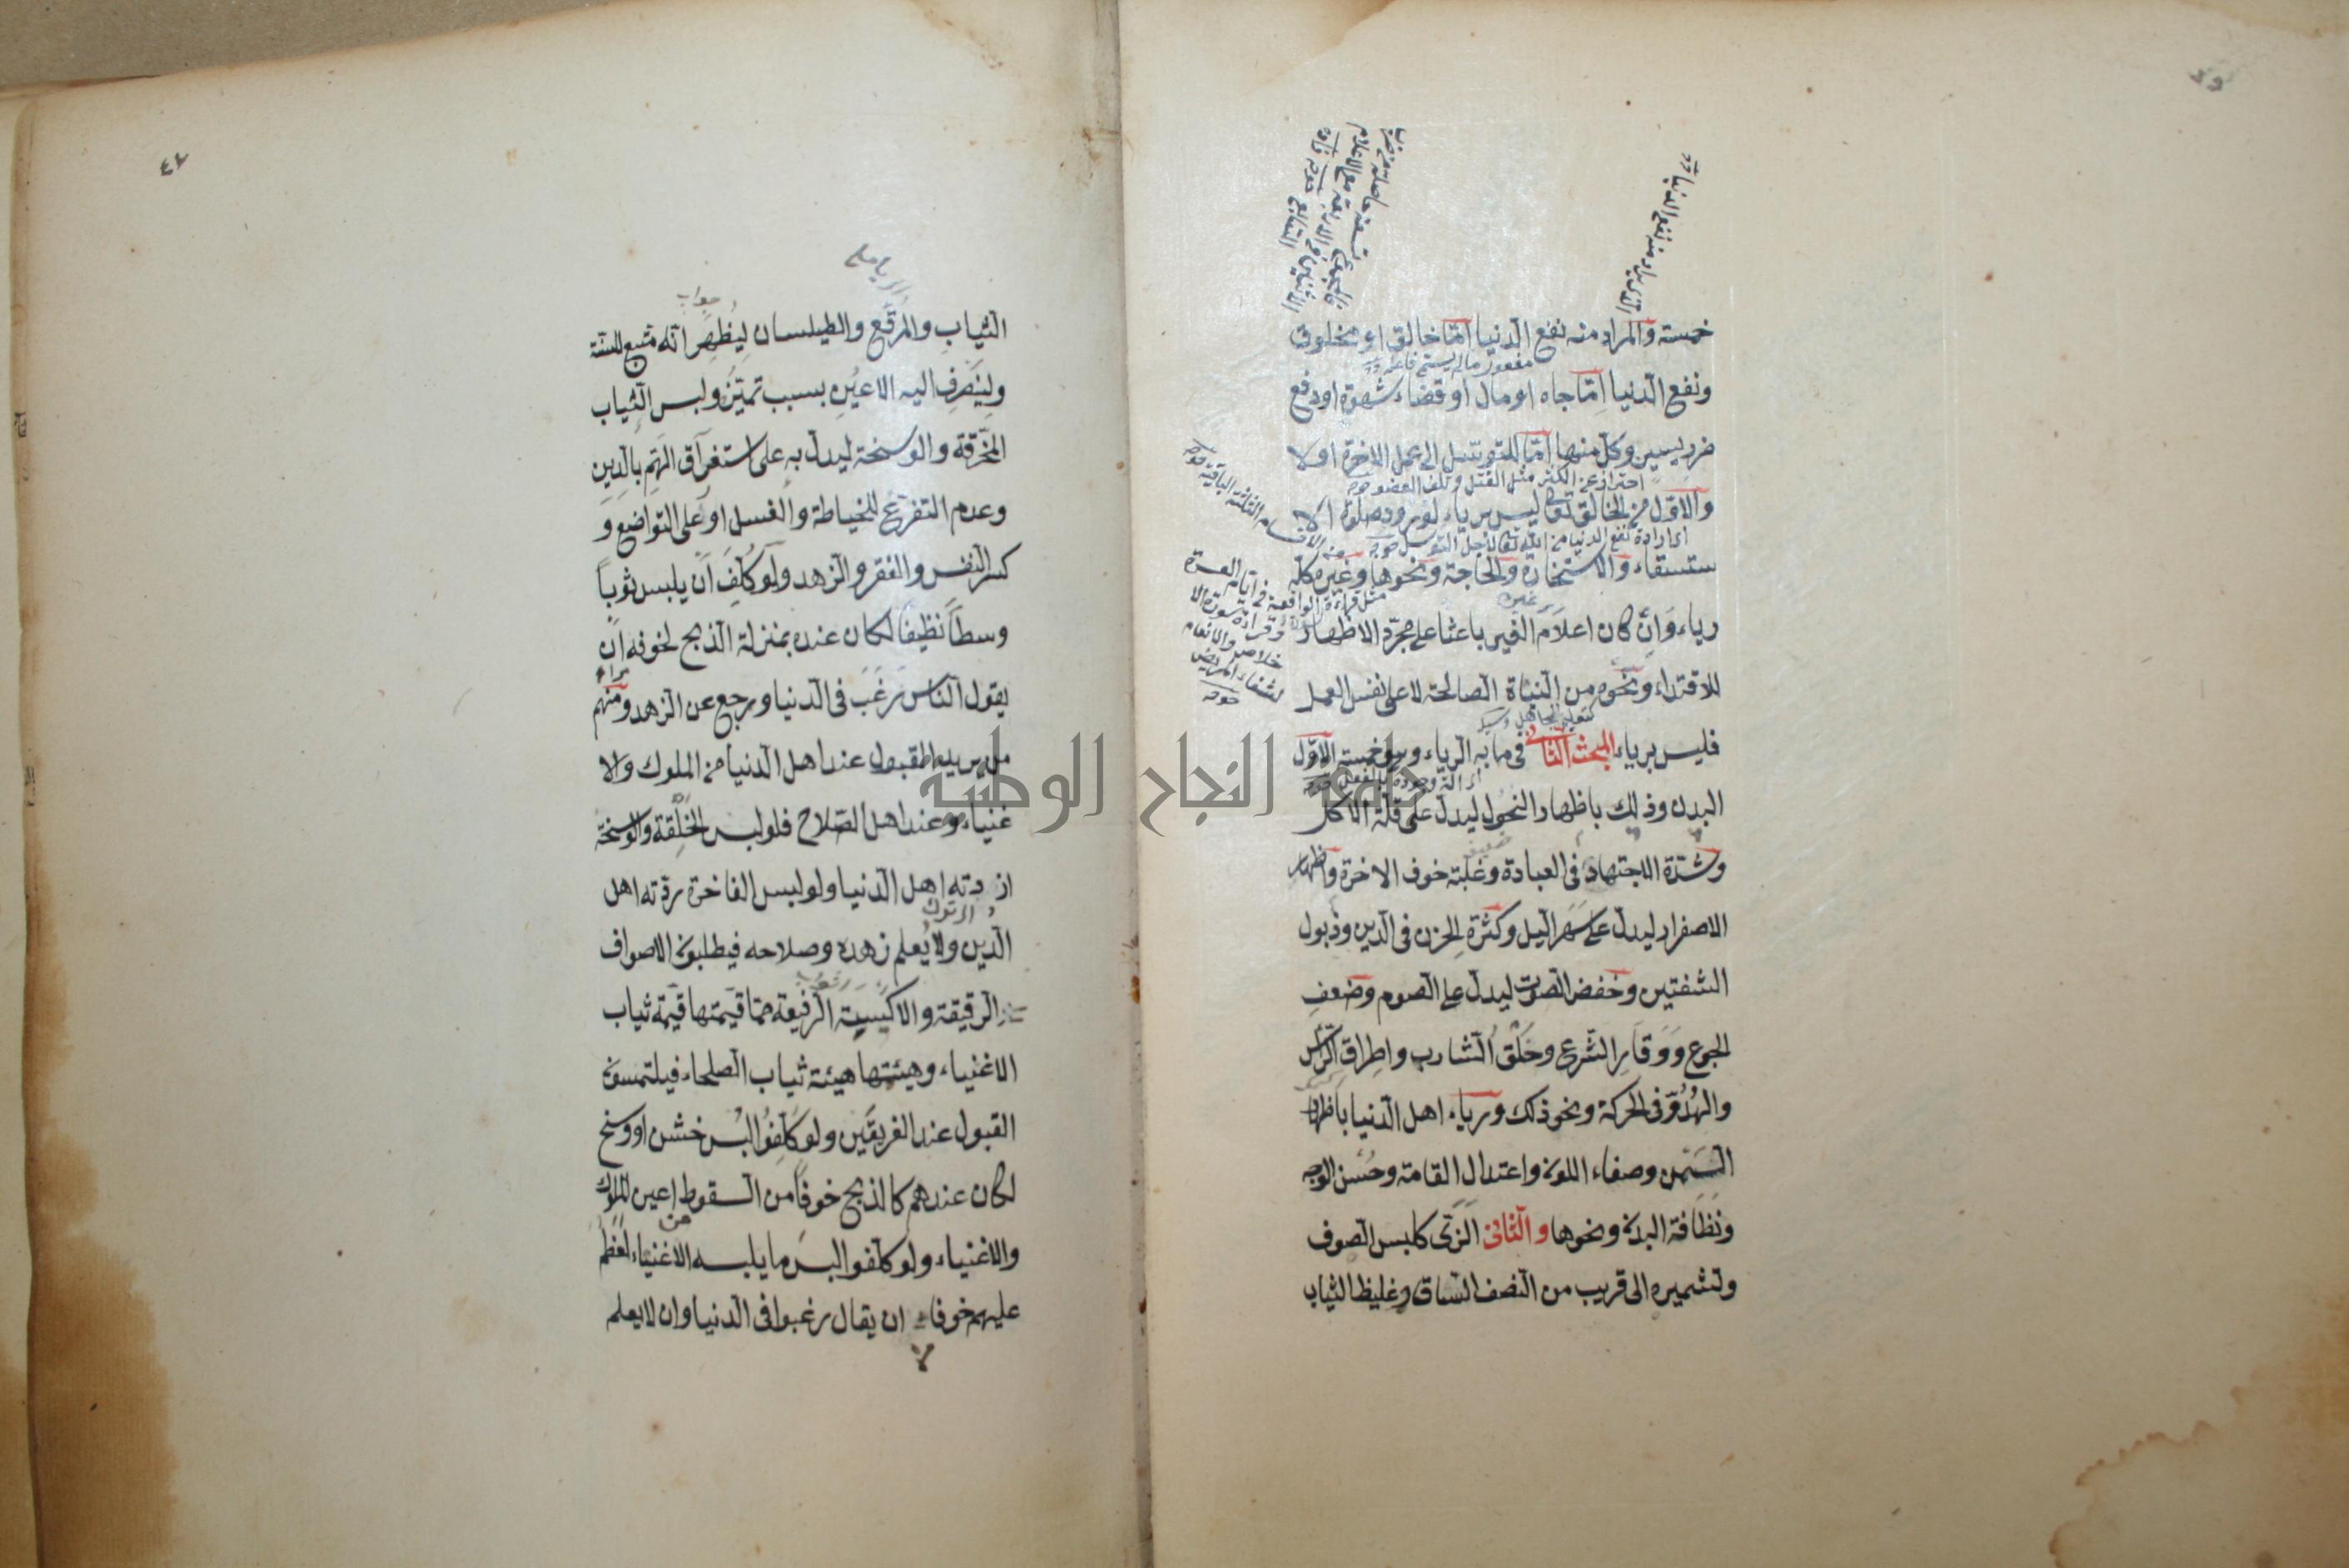 خمسة والمراد منه نفع الدنيا امّا خالق او مخلوق
ونفع الدنيا امّا جاه او مال او قضاء شهوة او دفع
ضرر يسير وكل منها امّا للتوسل الى عمل الاخرة اولا
احتراز عن الكثر مثل القتل وتلف العضو
والاوّل من الخالق تعالى ليس برياء لورود صلوة الا
اى ارادة نفع الدنيا من الله تعالى لاجل التوسل
ستسقاء والاستخارة والحاجة ونحوها وغيره كلّه
رياء وَاِنْ كان اعلام الغير باعثا على مجرّد الاظهار
للاقتداء ونحوه من النيّاة الصالحة لا على نفس العمل
فليس برياء المبحث الثانى فى ما به الرياء وهو خمسة الاوّل
البدن وذلك باظهار النحول ليدلّ على قلّة الاكل
وشدّة الاجتهاد فى العبادة وغلبة خوف الاخرة واظهار
الاصفرار ليدلّ على سهر الليل وكثرة الحزن فى الدين وذبول
الشفتين وخفض الصوت ليدلّ على الصوم وضعف
الجوع ووقار الشرع وحلق الشارب واطراق الرأس
والهُدُوّ فى الحركة ونحو ذلك ورياء اهل الدنيا باظهار
السّمن وصفاء اللون واعتدال القامة وحُسن الوجه
ونظافة البدن ونحوها والثانى الزىّ كلبس الصوف
وتشميره الى قريب من النصف الساق وغليظ الثياب
٤٧
جواب
الثياب والمُرقّع والطيلسان ليُظهر انّه متّبع للسنّة
وليَنصرف اليه الاعيُن بسبب تميّز ولبس الثياب
المخرّقة والوسخة ليدلّ به على استغراق الهمّ بالدين
وعدم التفرّغ للخياطة والغسل او على التواضع و
كسر النفس والفقر والزهد ولو كُلّف ان يلبس ثوباً
وسطاً نظيفاً لكان عنده بمنزلة الذبح لخوفه ان
يقول الناس رَغِبَ فى الدنيا ورجع عن الزهد ومنهم
من يريد القبول عند اهل الدنيا من الملوك والا
غنياء وعند اهل الصلاح فلو لبس الخَلِقة والوسخة
ازدته اهل الدنيا ولو لبس الفاخرة ردّته اهل
الدين ولا يُعلم زهده وصلاحه فيطلبون الاصواف
الرقيقة والاكسية الرفيعة ممّا قيمتها قيمة ثياب
الاغنياء وهيئتها هيئة ثياب الصلحاء فيلتمسون
القبول عند الفريقين ولو كُلّفوا لبس خشن او وسخ
لكان عندهم كالذبح خوفاً من السقوط اعين الملوك
من
والاغنياء ولو كلّفوا لبس ما يلبسه الاغنياء لعَظُم
عليهم خوفا ان يقال رغبوا فى الدنيا وان لا يعلم
جامعة النجاح الوطنية